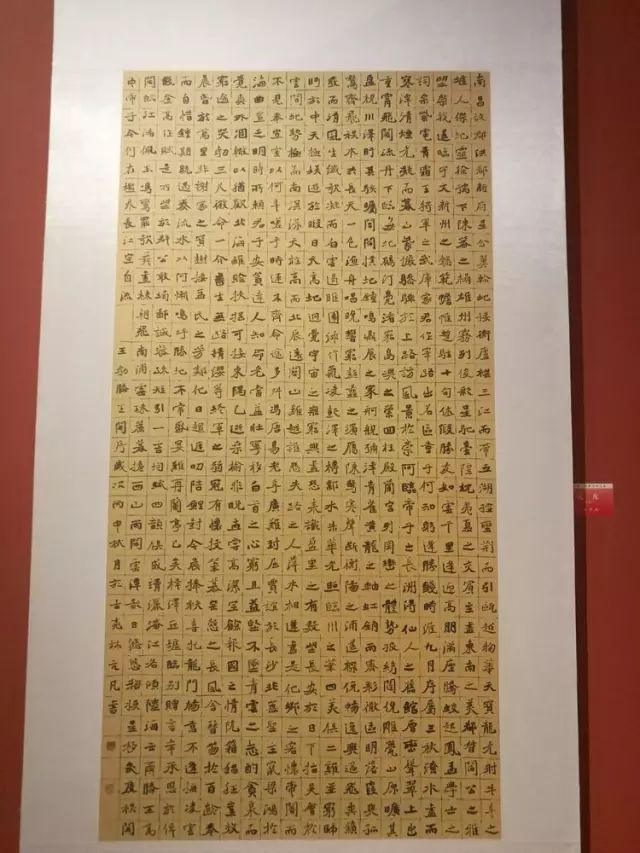 南昌故郡洪都新府星分翼軫地接衡廬襟三江而帶五湖控蠻荊而引甌越物華天寶龍光射牛斗之
墟人傑地靈徐孺下陳蕃之榻雄州霧列俊彩星馳臺隍枕夷夏之交賓主盡東南之美都督閻公之雅
望棨戟遙臨宇文新州之懿範襜帷暫駐十旬休假勝友如雲千里逢迎高朋滿座騰蛟起鳳孟學士之
詞宗紫電青霜王將軍之武庫家君作宰路出名區童子何知躬逢勝餞時維九月序屬三秋潦水盡而
寒潭清煙光凝而暮山紫儼驂騑於上路訪風景於崇阿臨帝子之長洲得仙人之舊館層巒聳翠上出
重霄飛閣流丹下臨無地鶴汀鳧渚窮島嶼之縈回桂殿蘭宮列岡巒之體勢披繡闥俯雕甍山原曠其
盈視川澤盱其駭矚閭閻撲地鐘鳴鼎食之家舸艦彌津青雀黃龍之軸虹銷雨霽彩徹區明落霞與孤
鶩齊飛秋水共長天一色漁舟唱晚響窮彭蠡之濱雁陣驚寒聲斷衡陽之浦遙襟俯暢逸興遄飛爽籟
發而清風生纖歌凝而白雲遏睢園綠竹氣凌彭澤之樽鄴水朱華光照臨川之筆四美俱二難並窮睇
眄於中天極娛遊於暇日天高地迥覺宇宙之無窮興盡悲來識盈虛之有數望長安於日下指吳會於
雲間地勢極而南溟深天柱高而北辰遠關山難越誰悲失路之人萍水相逢盡是他鄉之客懷帝閽而
不見奉宣室以何年嗟乎時運不齊命途多舛馮唐易老李廣難封屈賈誼於長沙非無聖主竄梁鴻於
海曲豈乏明時所賴君子安貧達人知命老當益壯寧移白首之心窮且益堅不墜青雲之志酌貪泉而
覺爽處涸轍以猶歡北海雖賒扶搖可接東隅已逝桑榆非晚孟嘗高潔空餘報國之情阮籍猖狂豈效
窮途之哭勃三尺微命一介書生無路請纓等終軍之弱冠有懷投筆慕宗愨之長風舍簪笏於百齡奉
晨昏於萬里非謝家之寶樹接孟氏之芳鄰他日趨庭叨陪鯉對今晨捧袂喜托龍門楊意不逢撫凌雲
而自惜鍾期既遇奏流水以何慚嗚呼勝地不常盛筵難再蘭亭已矣梓澤丘墟臨別贈言幸承恩於偉
餞登高作賦是所望於群公敢竭鄙誠恭疏短引一言均賦四韻俱成請灑潘江各傾陸海云爾滕王高
閣臨江渚佩玉鳴鸞罷歌舞畫棟朝飛南浦雲珠簾暮捲西山雨閒雲潭影日悠悠物換星移幾度秋閣
中帝子今何在檻外長江空自流 王勃滕王閣序歲次丙申秋月於古亳林元凡書